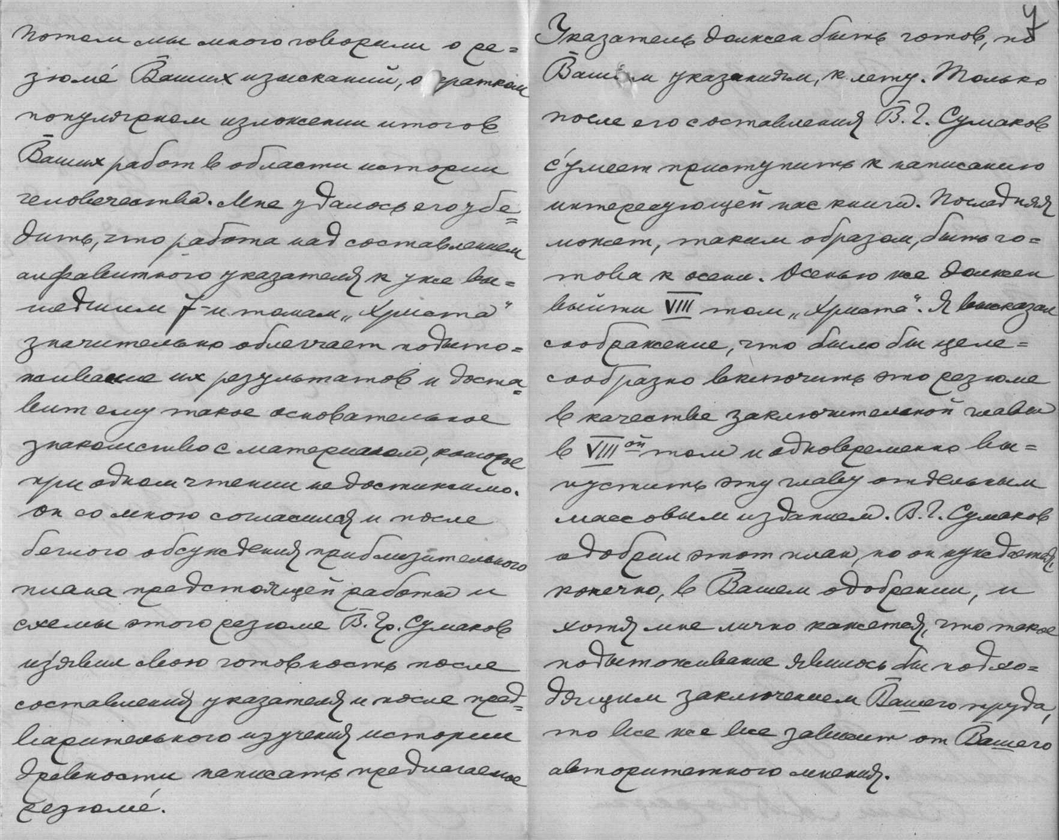 потом мы много говорили о ре=
зюмé Ваших изысканий, о кратком
популярном изложении итогов
Ваших работ в области истории
человечества. Мне удалось его убе=
дить, что работа над составлением
алфавитного указателя к уже вы=
шедшим 7-и томам „Христа"
значительно облегчает подыто=
живание их результатов и доста=
вит ему такое основательное
знакомство с материалом, которое
при одном чтении недостижимо.
Он со мною согласился и после
беглого обсуждения приблизительного
плана предстоящей работы и
схемы этого резюме В. Гр. Сумаков
из'явил свою готовность после
составления указателя и после пред=
варительного изучения истории
древности написать предлагаемое
резюмé.
7
Указатель должен быть готов, по
Вашим указаниям, к лету. Только
после его составления В. Г. Сумаков
с'умеет приступить к написанию
интересующей нас книги. Последняя
может, таким образом, быть го=
това к осени. Осенью же должен
выйти VIII том „Христа". Я высказал
соображение, что было бы целе=
сообразно включить это резюме
в качестве заключительной главы
в VIIIой том и одновременно вы=
пустить эту главу отдельным
массовым изданием. В. Г. Сумаков
одобрил этот план, но он нуждается,
конечно, в Вашем одобрении, и
хотя мне лично кажется, что такое
подытоживание явилось бы подхо=
дящим заключением Вашего труда,
то все же все зависит от Вашего
авторитетного мнения.